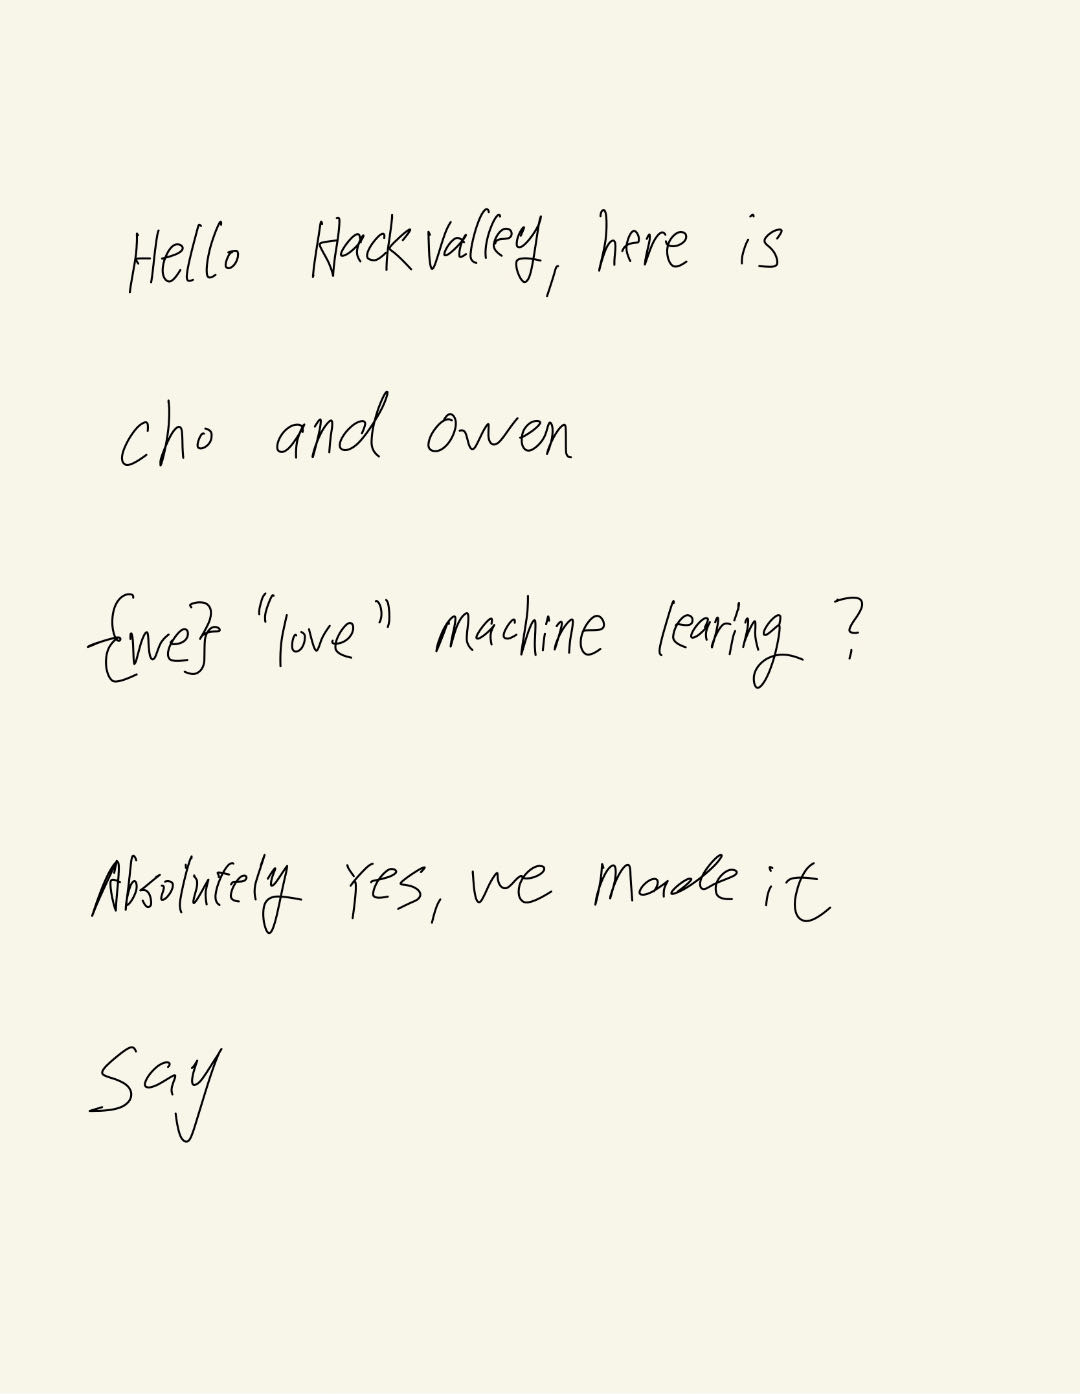 Hello Hack Valley, here is
cho and owen
{we} "love" machine learing ?
Absolutely Yes, we made it
Say